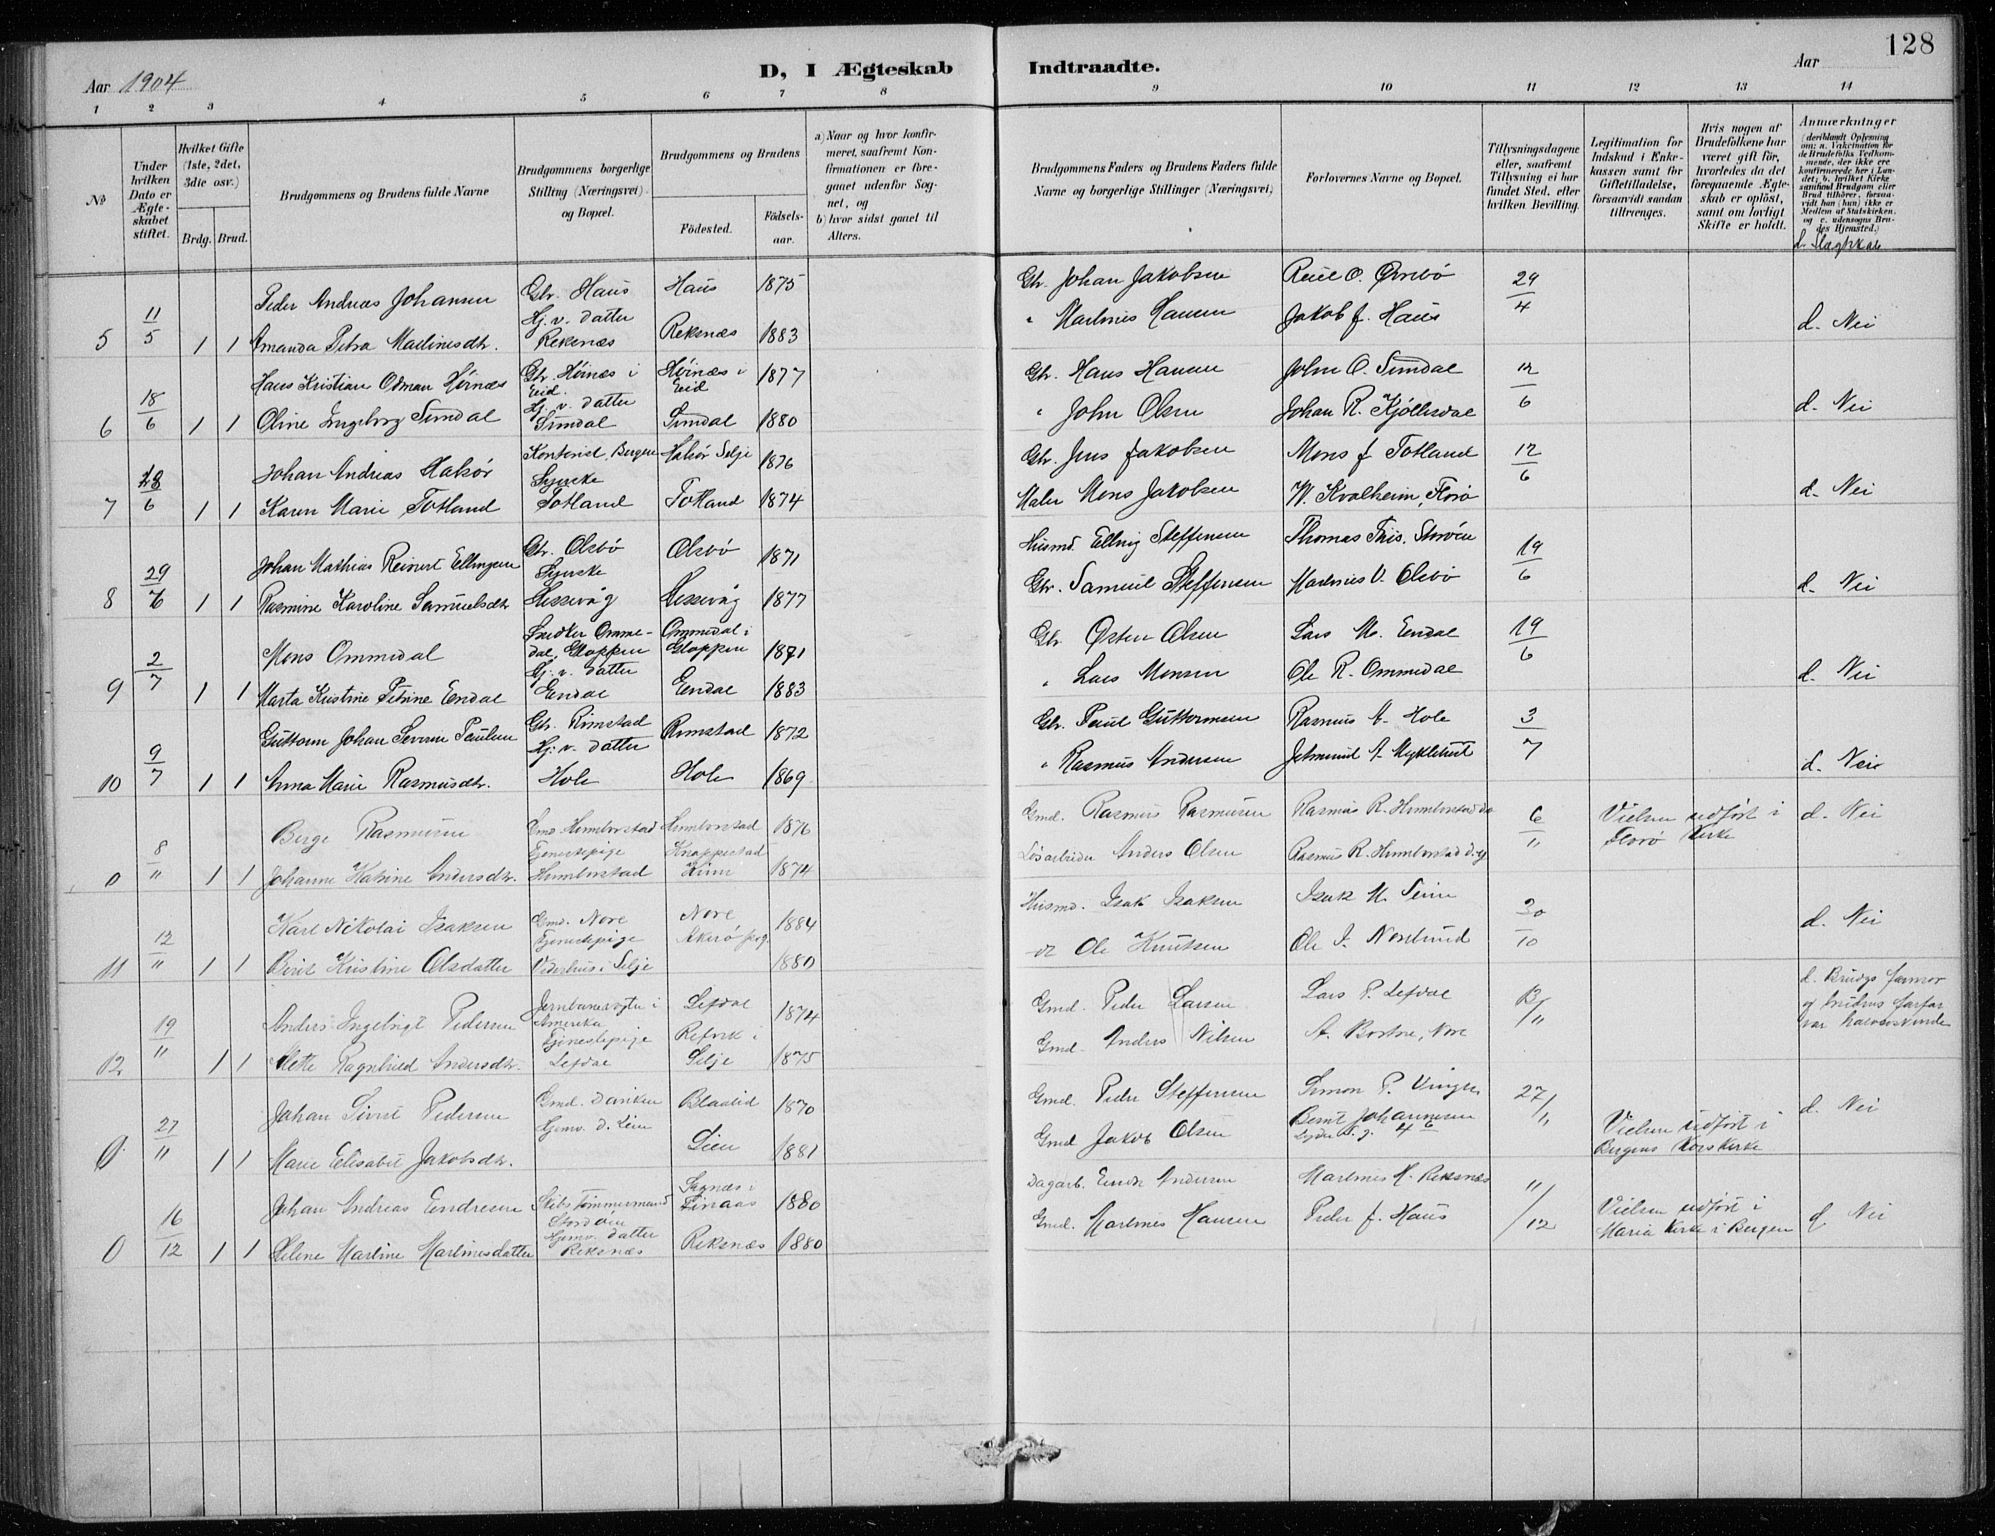 128
Aar 1904
D, I Ægteskab Indtraadte.
Aar
1 2 3 4 5 6 7 8 9 10 11 12 13 14
No
Under hvilken Dato er Ægteskabet stiftet.
Hvilket Gifte (1ste, 2det, 3die osv.)
Brdg. Brud.
Brudgommens og Brudens fulde Navne
Brudgommens borgerlige Stilling (Næringsvei) og Bopæl.
Brudgommens og Brudens
Födested.
Födselsaar.
a) Naar og hvor konfirmeret, saafremt Konfirmationen er foregaaet udenfor Sognet, og
b) hvor sidst gaaet til Alters.
Brudgommens Faders og Brudens Faders fulde Navne og borgerlige Stillinger (Næringsvei)
Forlovernes Navne og Bopæl.
Tillysningsdagene eller, saafremt Tillysning ei har fundet Sted, efter hvilken Bevilling.
Legitimation for Indskud i Enkekassen samt for Giftetilladelse, forsaavidt saadan tiltrænges.
Hvis nogen af Brudefolkene har været gift för, hvorledes da det foregaaende Ægteskab er oplöst, samt om lovligt Skifte er holdt.
Anmærkninger (deriblandt Oplysning om: a. Vakcination for de Brudefolks Vedkommende, der ikke ere konfirmerede her i Landet; b. hvilket Kirkesamfund Brudgom eller Brud tilhörer, forsaavidt han (hun) ikke er Medlem af Statskirken, og c. udensogns Brudes Hjemsted.)
d. Slægtskab
5 11/5 1 1 Peder Andreas Johansen Gbr. Haus Haus 1875 Gbr. Johan Jakobsen 29/4
Amanda Petra Martinesdtr. Hj. v. datter Reksnæs Reksnæs 1883 " Martines Hansen Jakob J. Haus d. Nei
6 18/6 1 1 Hans Kristian Odman Höinæs Gbr. Höinæs i Eid. Höinæs i Eid 1877 Gbr. Hans Hansen John O. Simdal 12/6
Oline Ingeborg Simdal Hj. v. datter Simdal Simdal 1880 " John Olsen Johan R. Kjöllesdal d. Nei
7 28/6 1 1 Johan Andreas Hakör Kontorist, Bergen Hakör Selje 1876 Gbr. Jens Jakobsen Mons J. Totland 12/6
Karen Marie Totland Syerske Totland Totland 1874 Maler Mons Jakobsen W. Kvalheim, Florö d. Nei
8 29/6 1 1 Johan Mathias Reinert Ellingsen Gbr. Olsbö Olsbö 1871 Husmd. Elling Steffensen 19/6
Rasmine Karoline Samuelsdtr Syerske Hessevåg Hessevåg 1877 Gbr. Samuel Steffensen Martines O. Olsbö d. Nei
9 2/7 1 1 Mons Ommedal Snedker Ommedal, Gloppen Ommedal i Gloppen 1871 Gbr Østen Olsen Lars M. Endal 19/6
Marta Kristine Petrine Endal Hj. v. datter Endal Endal 1883 " Lars Monsen Ole R. Ommedal d. Nei
10 9/7 1 1 Guttorm Johan Severin Paulsen Gbr. Rimstad Rimstad 1872 Gbr. Paul Guttormsen Rasmus A. Hole 3/7
Anna Marie Rasmusdtr. Hj. v. datter Hole Hole 1869 " Rasmus Andersen Jetmund A. Myklebust d. Nei
0 8/11 1 1 Berge Rasmusen Gmd Humborstad Humborstad 1876 Gmd. Rasmus Rasmusen Rasmus R. Humborstad 6/11 Vielsen udfört i Florö Kirke d. Nei
Johanne Katrine Andersdtr. Tjenestepige Humborstad Knappestad Kinn 1874 Lösarbeider Anders Olsen Rasmus R. Humborstad d. y
11 12/11 1 1 Karl Nikolai Isaksen Gmd. Nore Nore 1884 Husmd. Isak Isaksen Isak M. 30/10 d. Nei
Berit Kristine Olsdatter Tjenestepige i Selje 1880 Ole Knutsen Ole J.
12 19/11 1 1 Anders Ingebrigt Pedersen Jernbanevogter i Amerika Lefdal 1874 Gmd. Peder Larsen Lars P. Lefdal 13/11 d. Brudgs farmor og brudens farfar var halvsöskende
Mette Ragnhild Andersdtr. Tjenestepige Lefdal Refvik i Selje 1875 Gmd. Anders Nilsen A. Nore
0 27/11 1 1 Johan Sivert Pedersen Gmd. Blaalid 1870 Gmd. Peder Steffensen Simon P. 27/11 Vielsen udfört i Bergens Korskirke d. Nei
Marie Elisabet Jakobsdtr. Hjemv. d. Lein Lien 1881 Gmd Jakob Olsen Bernt Johannesen
0 16/12 1 1 Johan Andreas Endresen Skibs Tömmermand i Finaas 1880 Dagarb. Endr. Andersen Martines H. Reksnæs 11/12 Vielsen udfört i Maria Kirke i Bergen d Nei
Selene Martine Martinesdatter Hjemv. datter Reksnæs Reksnæs 1880 Gmd. Martines Hansen Peder J. Haus